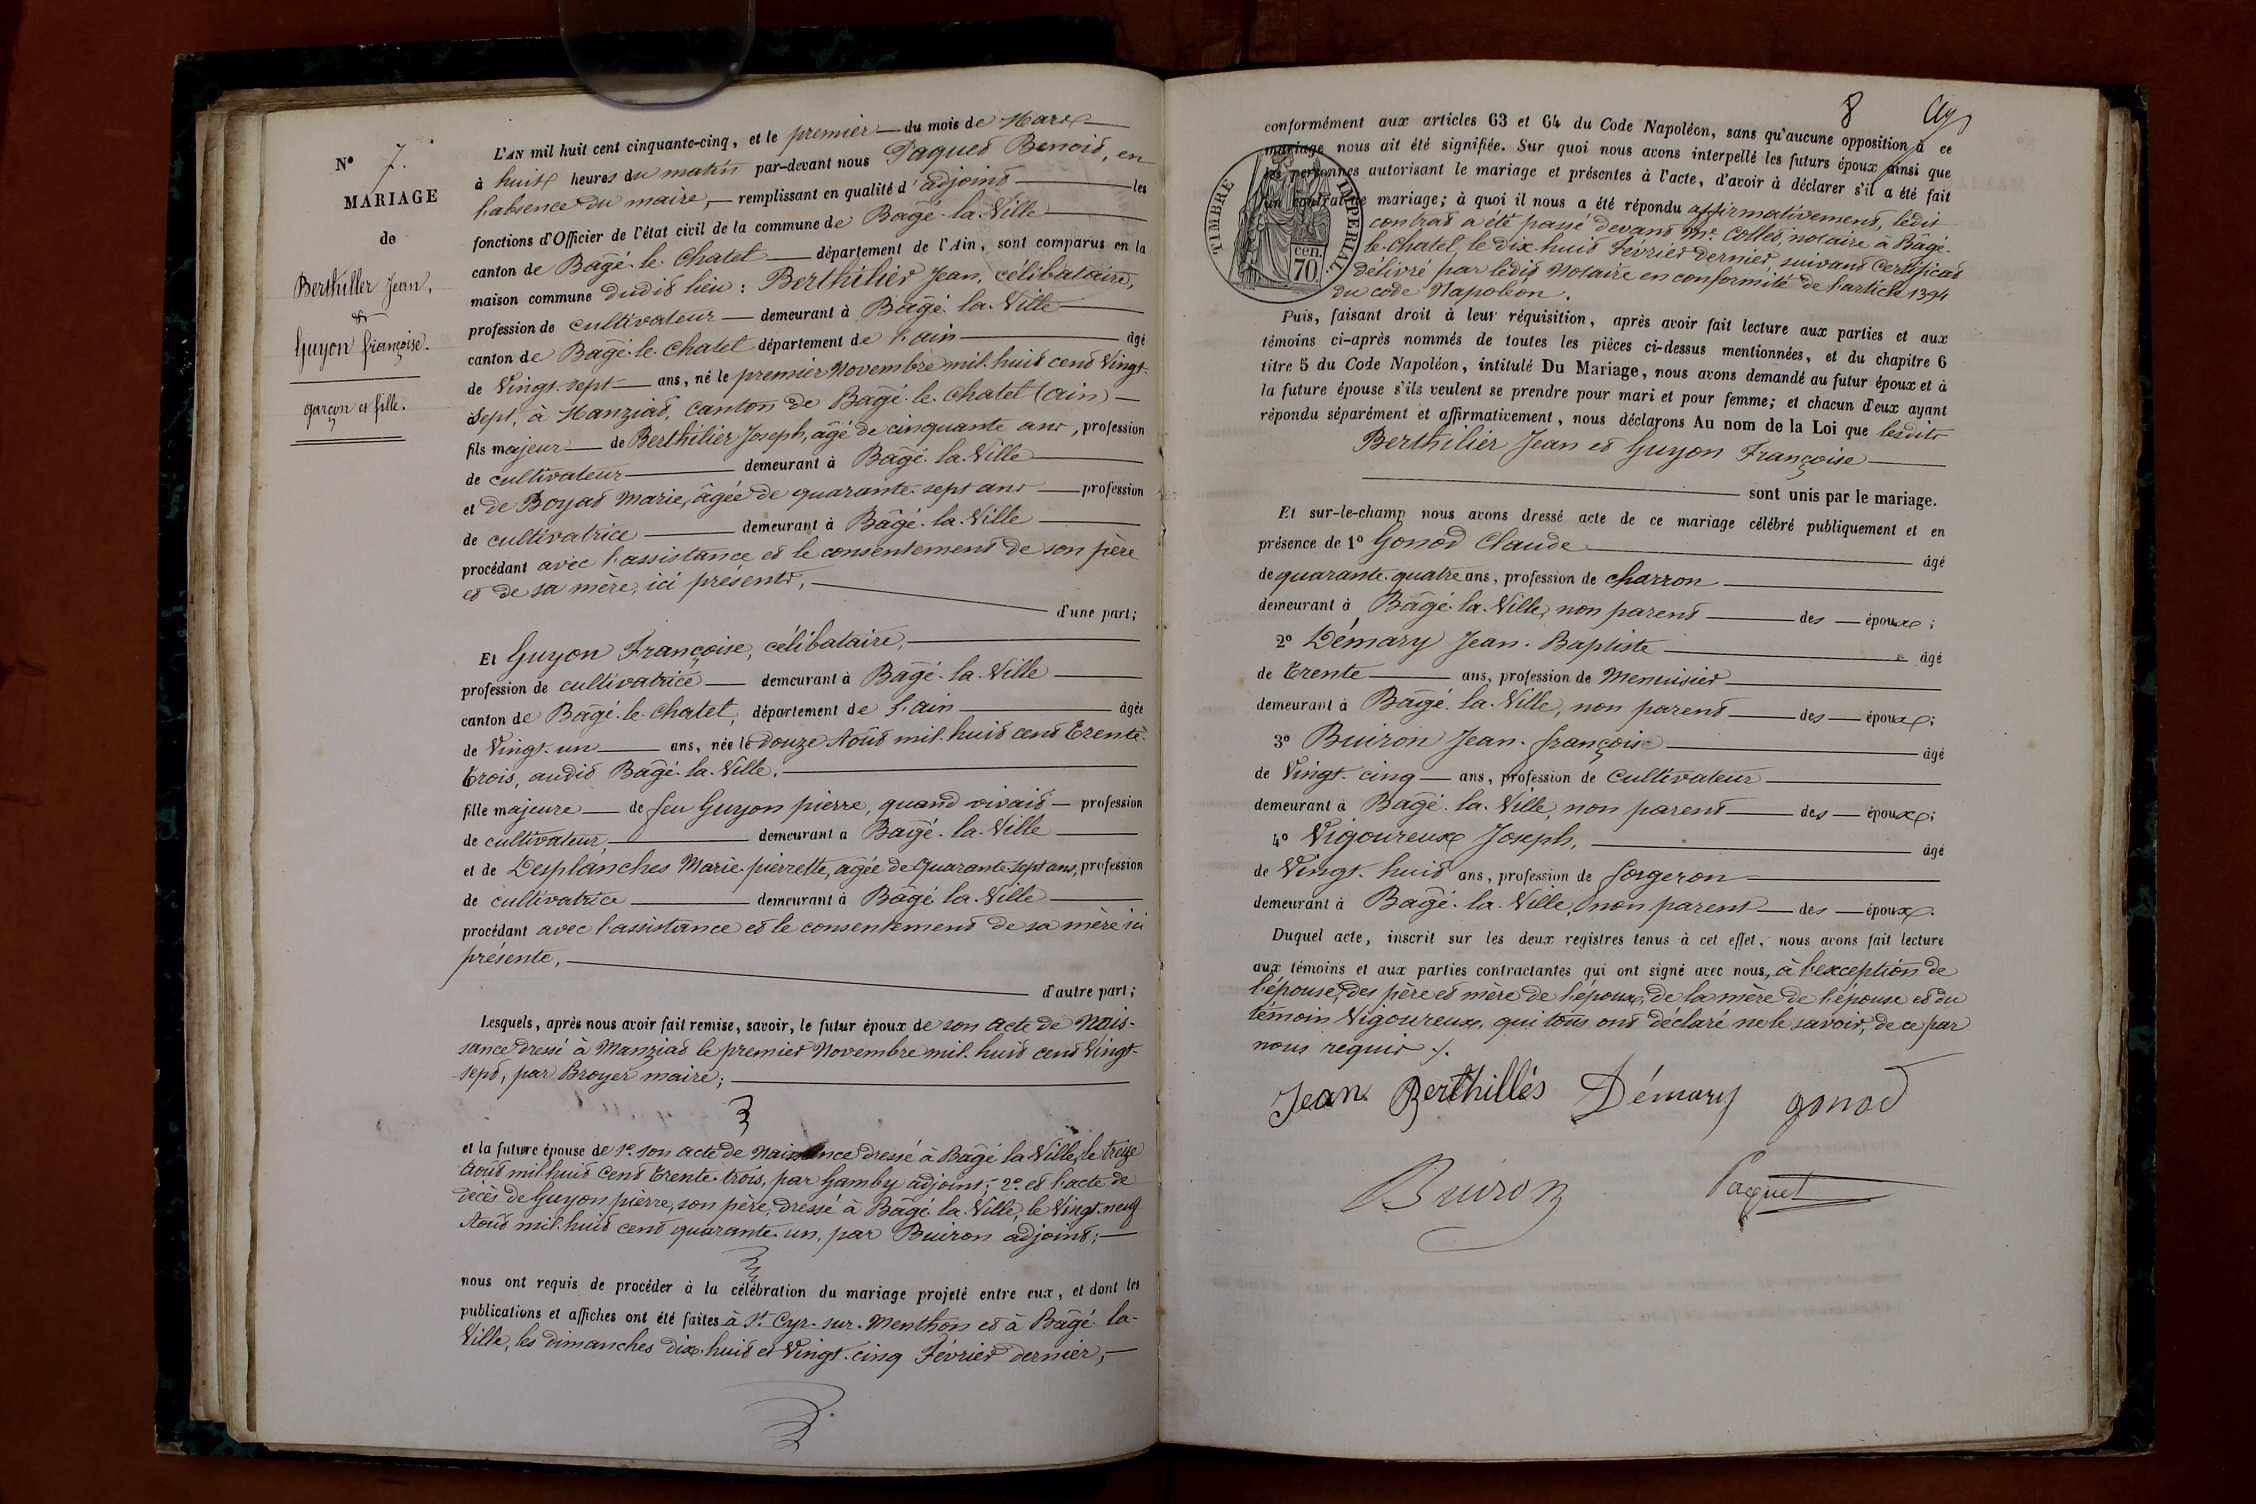 N° 7.
MARIAGE
de
Berthillier Jean,
&
Guyon françoise.
garçon et fille.
L'AN mil huit cent cinquante-cinq, et le premier du mois de Mars
à huit heures du matin par-devant nous Paquet Benoit, en
l'absence du maire, remplissant en qualité d'adjoint les
fonctions d'Officier de l'état civil de la commune de Bâgé-la-Ville
canton de Bâgé-le-Chatel département de l'Ain, sont comparus en la
maison commune dudit lieu : Berthilier Jean, célibataire,
profession de cultivateur demeurant à Bâgé-la-Ville
canton de Bâgé-le-Chatel département de l'ain âgé
de Vingt-sept ans, né le premier Novembre mil-huit cent Vingt-
Sept, à Manziat, canton de Bâgé-le-Chatel (ain)
fils majeur de Berthilier Joseph, âgé de cinquante ans, profession
de cultivateur demeurant à Bâgé-la-Ville
et de Boyat Marie, âgée de quarante-sept ans profession
de cultivatrice demeurant à Bâgé-la-Ville
procédant avec l'assistance et le consentement de son père
et de sa mère, ici présents, d'une part;
Et Guyon Françoise, célibataire,
profession de cultivatrice demeurant à Bâgé-la-Ville
canton de Bâgé-le-Chatel, département de l'ain âgée
de Vingt-un ans, née le douze Août mil-huit cent Trente-
Trois, audit Bâgé-la-Ville.
fille majeure de feu Guyon pierre, quand vivait profession
de cultivateur, demeurant à Bâgé-la-Ville
et de Desplanches Marie-pierrette, âgée de Quarante-sept ans, profession
de cultivatrice demeurant à Bâgé-la-Ville
procédant avec l'assistance et le consentement de sa mère ici
présente, d'autre part;
Lesquels, après nous avoir fait remise, savoir, le futur époux de son acte de Nais-
sance dressé à Manziat le premier Novembre mil-huit cent Vingt-
sept, par Broyer maire;
et la future épouse de 1° son acte de Naissance dressé à Bâgé la Ville, le treize
Août mil-huit cent Trente-trois, par Gamby adjoint; 2° et l'acte de
décès de Guyon pierre, son père, dressé à Bâgé-la-Ville, le Vingt-neuf
Août mil-huit cent quarante-un, par Buiron adjoint;
nous ont requis de procéder à la célébration du mariage projeté entre eux, et dont les
publications et affiches ont été faites à St Cyr-sur-Menthon et à Bâgé-la-
Ville, les dimanches dix-huit et Vingt-cinq Février dernier,
8
conformément aux articles 63 et 64 du Code Napoléon, sans qu'aucune opposition à ce
mariage nous ait été signifiée. Sur quoi nous avons interpellé les futurs époux ainsi que
les personnes autorisant le mariage et présentes à l'acte, d'avoir à déclarer s'il a été fait
un contrat de mariage; à quoi il nous a été répondu affirmativement, ledit
contrat a été passé devant Me. Collet, notaire à Bâgé-
le-Chatel, le dix-huit Février dernier, suivant Certificat
délivré par ledit Notaire en conformité de l'article 1394
du code Napoléon.
TIMBRE IMPERIAL.
cen.
70
Puis, faisant droit à leur réquisition, après avoir fait lecture aux parties et aux
témoins ci-après nommés de toutes les pièces ci-dessus mentionnées, et du chapitre 6
titre 5 du Code Napoléon, intitulé Du Mariage, nous avons demandé au futur époux et à
la future épouse s'ils veulent se prendre pour mari et pour femme; et chacun d'eux ayant
répondu séparément et affirmativement, nous déclarons Au nom de la Loi que lesdits
Berthilier Jean et Guyon Françoise
sont unis par le mariage.
Et sur-le-champ nous avons dressé acte de ce mariage célébré publiquement et en
présence de 1° Gonod Claude âgé
de quarante-quatre ans, profession de charron
demeurant à Bâgé-la-Ville, non parent des époux;
2° Démary Jean-Baptiste âgé
de Trente ans, profession de Menuisier
demeurant à Bâgé-la-Ville, non parent des époux;
3° Buiron Jean-françois âgé
de Vingt-cinq ans, profession de Cultivateur
demeurant à Bâgé-la-Ville, non parent des époux;
4° Vigoureux Joseph, âgé
de Vingt-huit ans, profession de forgeron
demeurant à Bâgé-la-Ville, non parent des époux.
Duquel acte, inscrit sur les deux registres tenus à cet effet, nous avons fait lecture
aux témoins et aux parties contractantes qui ont signé avec nous, à l'exception de
l'épouse, des père et mère de l'époux, de la mère de l'épouse et du
témoin Vigoureux, qui tous ont déclaré ne le savoir, de ce par
nous requis ./.
Jean Berthillés Démary gonod
Buiron Paquet